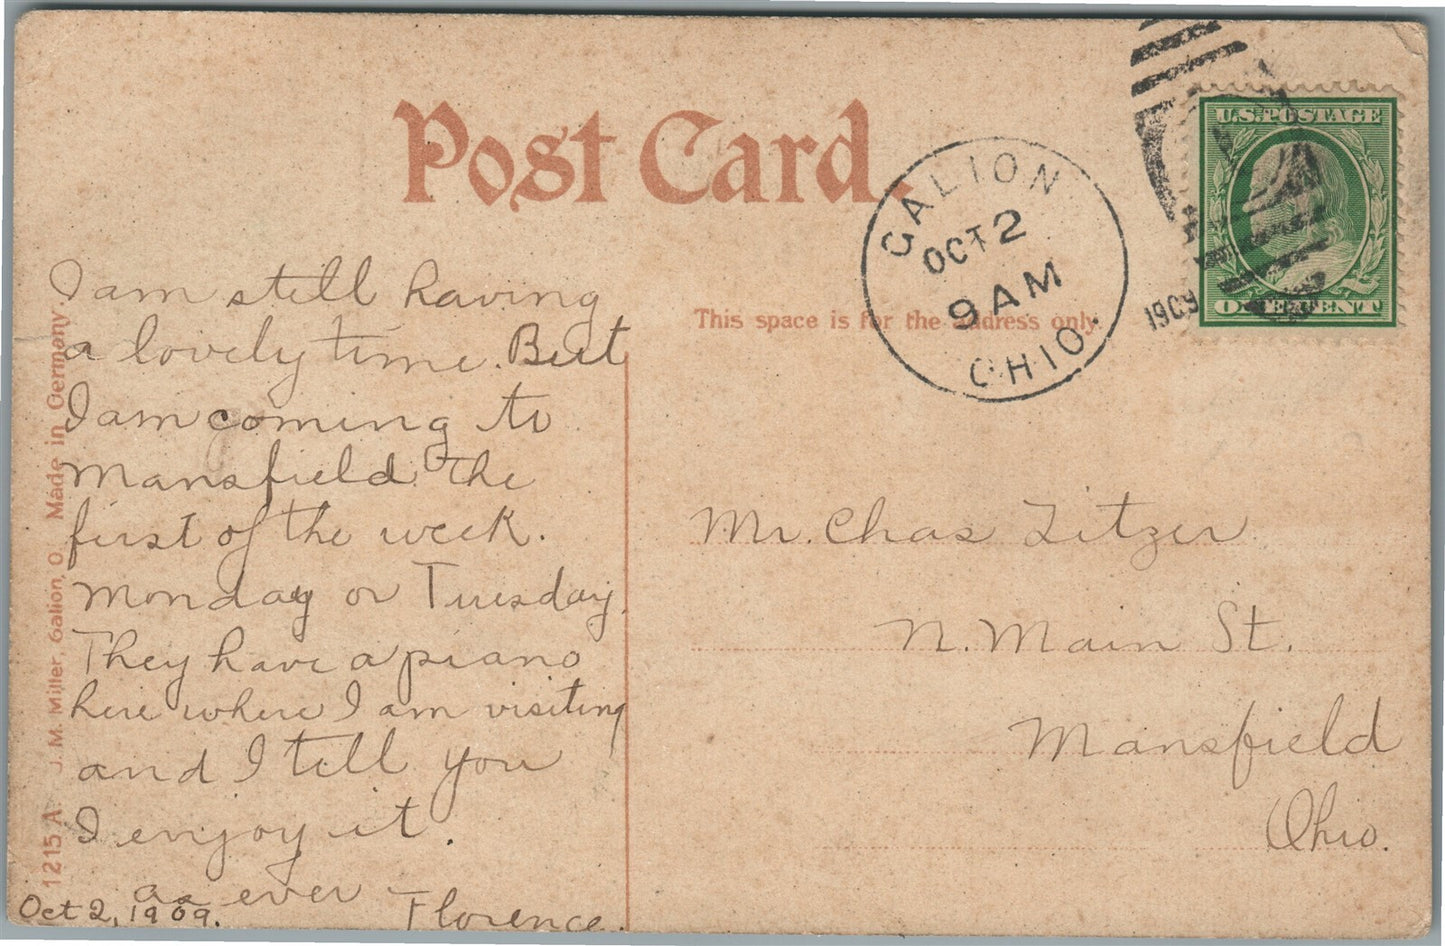 Post Card.
GALION
OCT 2
9 AM
1909
OHIO.
U.S. POSTAGE
ONE CENT
This space is for the address only.
I am still having
a lovely time. But
I am coming to
Mansfield the
first of the week.
Monday or Tuesday.
They have a piano
here where I am visiting
and I tell you
I enjoy it.
as ever
Florence.
Oct 2, 1909.
Mr. Chas Titzer
N. Main St.
Mansfield
Ohio.
1215 A. J. M. Miller, Galion, O. Made in Germany.